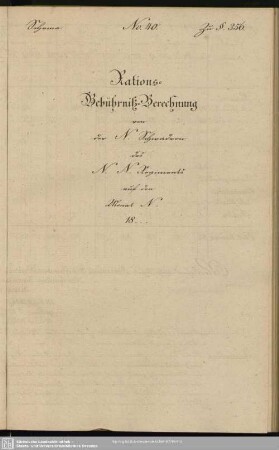 Schema No: 40. Zu §. 356.
Rations-
Gebührniß-Berechnung
von
der N Schwadron
des
N. N. Regiments
auf den
Monat N.
18